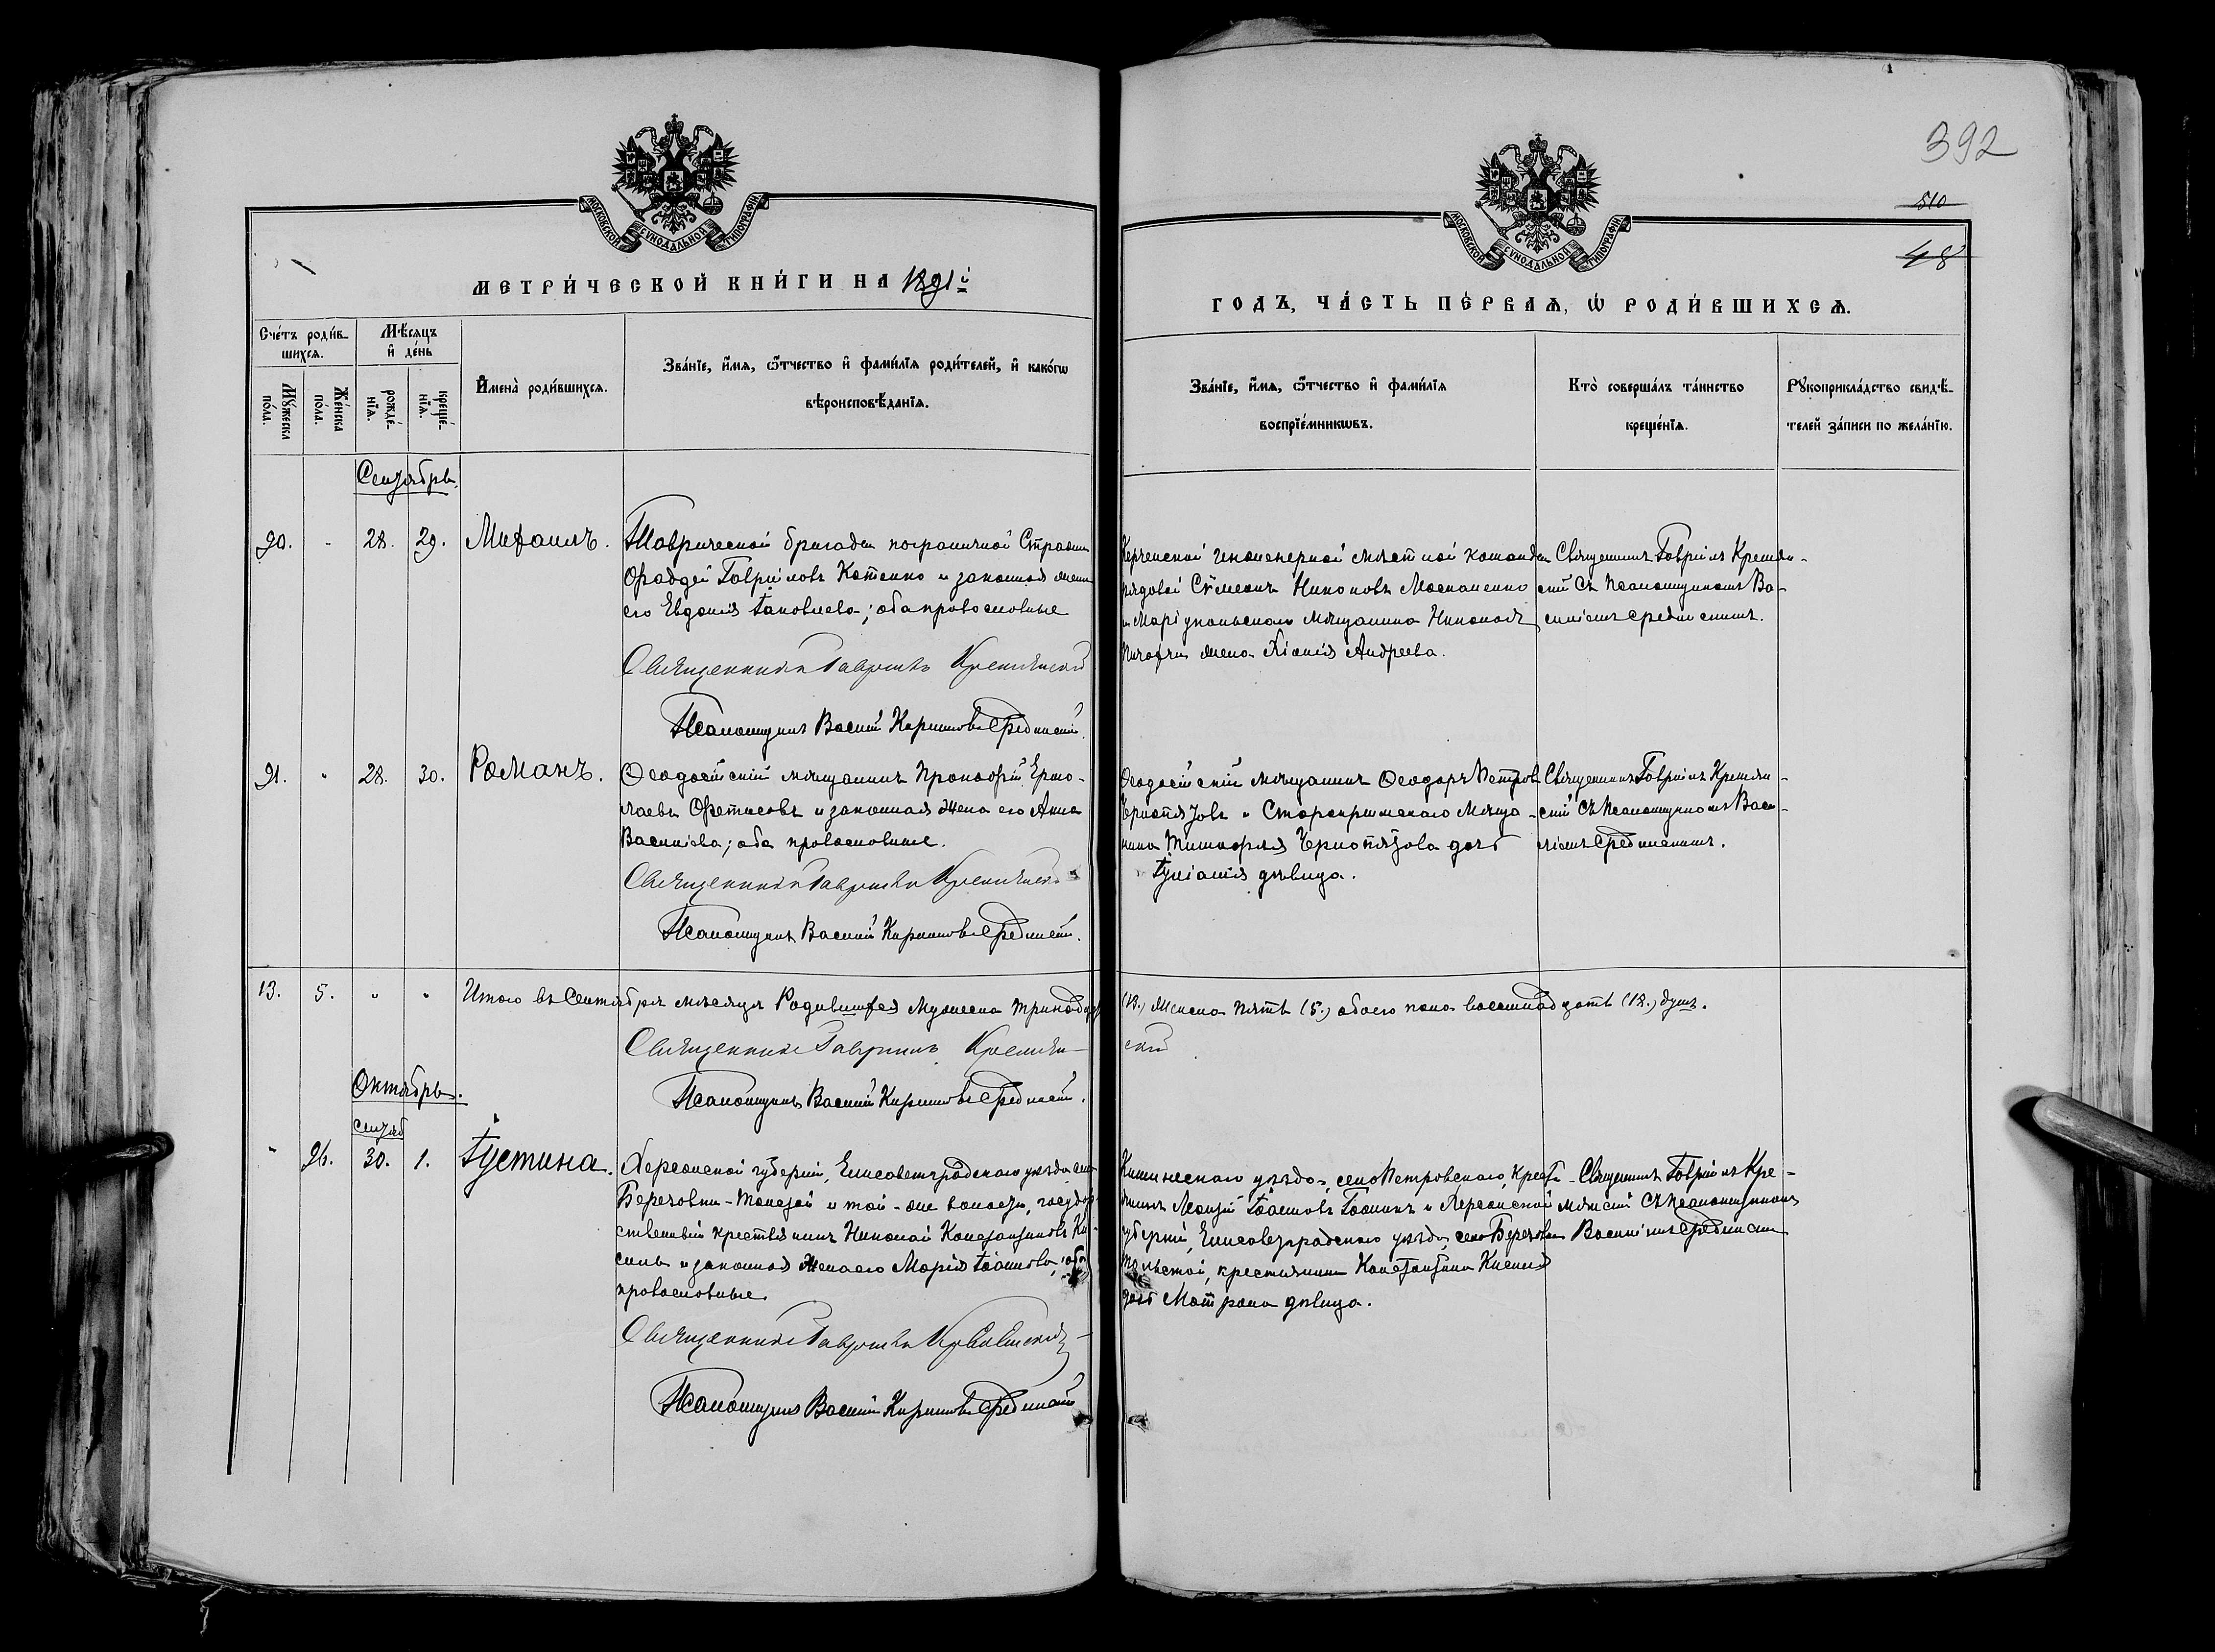 392
510
48
МОСКОВСКОЙ СѴНОДАЛЬНОЙ ТИПОГРАФІИ
МЕТРИ́ЧЕСКОЙ КНИ́ГИ НА 1891й
МОСКОВСКОЙ СѴНОДАЛЬНОЙ ТИПОГРАФІИ
ГОДЪ, ЧА́СТЬ ПЕ́РВАѦ, Ѡ҆ РОДИ́ВШИХСѦ.
Сче́тъ роди́в-
шихсѧ.
Мꙋ́жеска по́ла.
Же́нска по́ла.
Мѣ́сѧцъ
и҆ де́нь
рожде́-нїѧ.
креще́-нїѧ.
И҆мена̀ роди́вшихсѧ.
Зва́нїе, и҆́мѧ, ѻ҆́тчество и҆ фами́лїѧ роди́телей, и҆ како́гѡ
вѣроисповѣ́данїѧ.
Зва́нїе, и҆́мѧ, ѻ҆́тчество и҆ фами́лїѧ
воспрїе́мникѡвъ.
Кто̀ соверша́лъ та́инство
креще́нїѧ.
Рꙋкоприкла́дство свидѣ́-
телей за́писи по жела́нїю.
Сентябрь.
90. " 28. 29. Михаилъ.
Таврической бригады пограничной Стражи
Фаддей Гавріиловъ Котенко и законная жена
его Евдокія Іаковлева; оба православные
Священникъ Гавріилъ Кремянскій
Псаломщикъ Василій Кириловъ Срединскій.
Керченской инженерной мѣстной команды
рядовой Сѵмеонъ Никоновъ Москаленко
и Маріупольскаго мѣщанина Николая
жена Хіонія Андреева.
Священникъ Гавріилъ Кремян-
скій съ псаломщикомъ Ва-
силіемъ Срединскимъ.
91. " 28. 30. Романъ.
Ѳеодосійскій мѣщанинъ Прокофій Ермо-
лаевъ Фетисовъ и законная жена его Анна
Василіева; оба православные.
Священникъ Гавріилъ Кремянскій
Псаломщикъ Василій Кириловъ Срединскій.
Ѳеодосійскій мѣщанинъ Ѳеодоръ Петровъ
Чернотязовъ и Старокрымскаго мѣща-
нина Тимофея Чернотязова дочь
Іуліанія дѣвица.
Священникъ Гавріилъ Кремян-
скій съ псаломщикомъ Васи-
ліемъ Срединскимъ.
13. 5. " " Итого въ Сентябрѣ мѣсяцѣ Родившихся Мужеска тринадцать (13.) Женска пять (5.) обоего пола восемнадцать (18.) душъ.
Священникъ Гавріилъ Кремян-скій
Псаломщикъ Василій Кириловъ Срединскій.
Октябрь.
Сентяб
" 96. 30. 1. Іустина.
Херсонской губерніи, Елисаветградскаго уѣзда, села
Березовки- и той-же волости, государ-
ственный крестьянинъ Николай Константиновъ Ки-
сель и законная жена его Марія Іоаннова; оба
православные.
Священникъ Гавріилъ Кремянскій
Псаломщикъ Василій Кириловъ Срединскій
уѣзда, села Петровскаго, крестья-
нинъ Іоанновъ и Херсонской
губерніи, Елисаветградскаго уѣзда, села Березовки
крестьянина Константина Киселя
дочь Матрона дѣвица.
Священникъ Гавріилъ Кре-
мянскій съ псаломщикомъ
Василіемъ Срединскимъ